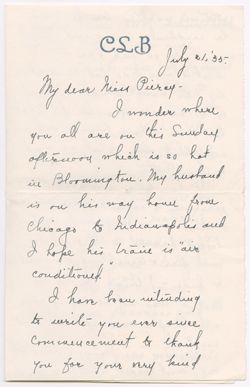 CLB
July 21, '35.
My dear Miss Piercy -
I wonder where
you all are on this Sunday
afternoon which is so hot
in Bloomington. My husband
is on his way home from
Chicago to Indianapolis and
I hope his train is "air
conditioned"
I have been intending
to write you ever since
commencement to thank
you for your very kind